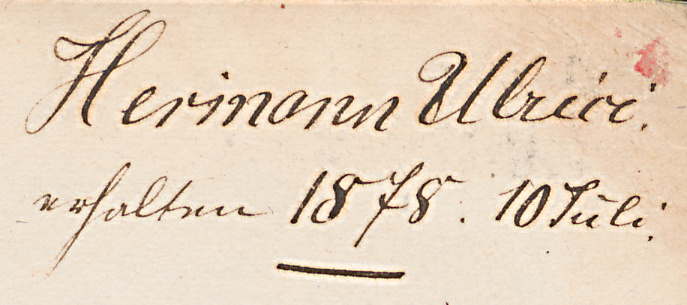 Hermann Ulrici.
erhalten 1878. 10 Juli.